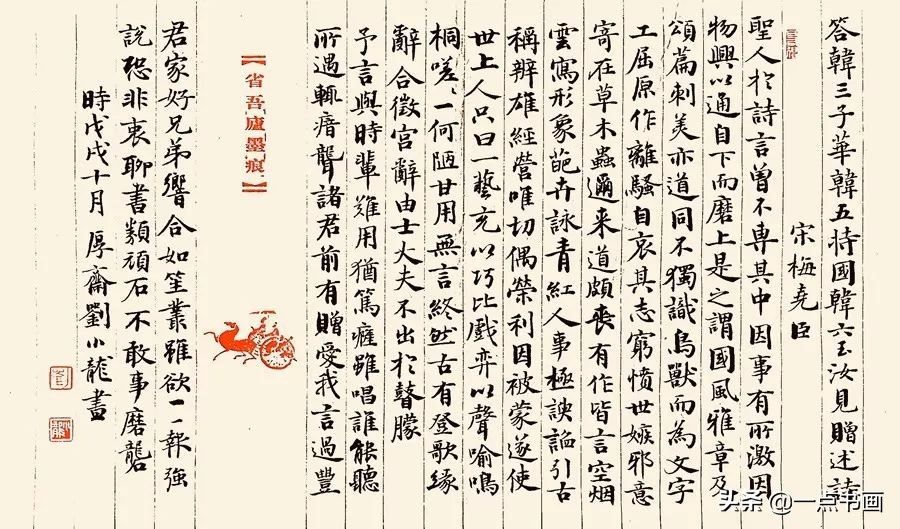 答韓三子華韓五持國韓六玉汝見贈述詩
宋梅堯臣
聖人於詩言曾不專其中因事有所激因
物興以通自下而磨上是之謂國風雅章及
頌篇刺美亦道同不獨識鳥獸而為文字
工屈原作離騷自哀其志窮憤世嫉邪意
寄在草木蟲邇來道頗喪有作皆言空烟
雲寫形象葩卉詠青紅人事極諛諂引古
稱辨雄經營唯切偶榮利因被蒙遂使
世上人只曰一藝充以巧比戲弈以聲喻鳴
桐嗟〻一何陋甘用無言終然古有登歌緣
辭合徵宮辭由士大夫不出於瞽矇
予言與時輩難用猶篤癃雖唱誰能聽
所遇輒瘖聾諸君前有贈愛我言過豐
【省吾廬墨痕】
君家好兄弟響合如笙叢雖欲一一報強
說恐非衷聊書類頑石不敢事磨礱
時戊戌十月 厚齋劉小龍書
头条 @一点书画